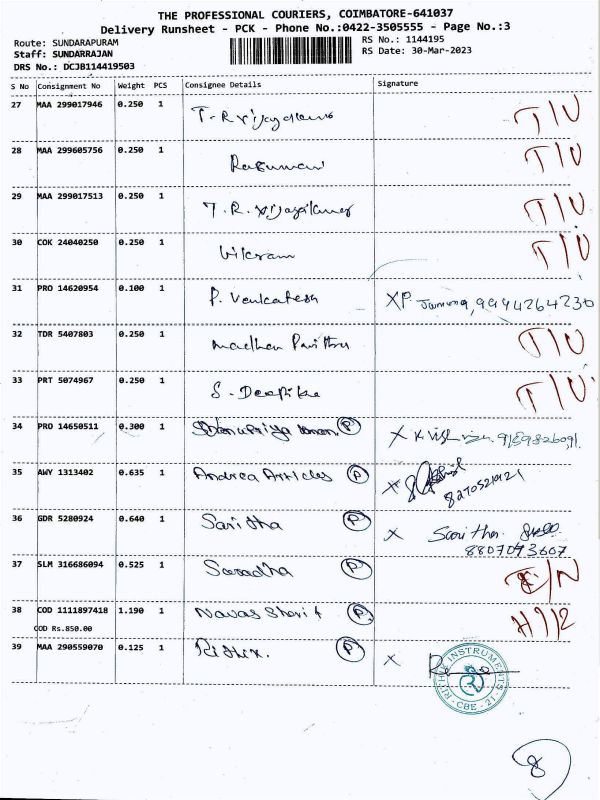 THE PROFESSIONAL COURIERS, COIMBATORE-641037
Delivery Runsheet - PCK - Phone No.:0422-3505555 - Page No.:3
Route: SUNDARAPURAM
RS No.: 1144195
Staff: SUNDARRAJAN
RS Date: 30-Mar-2023
DRS No.: DCJB114419503
S No Consignment No Weight PCS Consignee Details Signature
27 MAA 299017946 0.250 1 T.R Vijayakumar T/U
28 MAA 299605756 0.250 1 T/U
29 MAA 299017513 0.250 1 T.R. Vijayakumar T/U
30 COK 24040250 0.250 1 Vikram T/U
31 PRO 14620954 0.100 1 P. Venkatesh XP 9944264230
32 TDR 5407803 0.250 1 T/U
33 PRT 5074967 0.250 1 S. Deepika T/U
34 PRO 14650511 0.300 1 P X
35 AWY 1313402 0.635 1 Andrea Articles P X
8270521921
36 GDR 5280924 0.640 1 Saritha P X Saritha
8807043607
37 SLM 316686094 0.525 1 Saradha P /N
38 COD 1111897418 1.190 1 Navas Sherif P
COD Rs.850.00
39 MAA 290559070 0.125 1 P X
INSTRUMENTS
CBE - 21
8